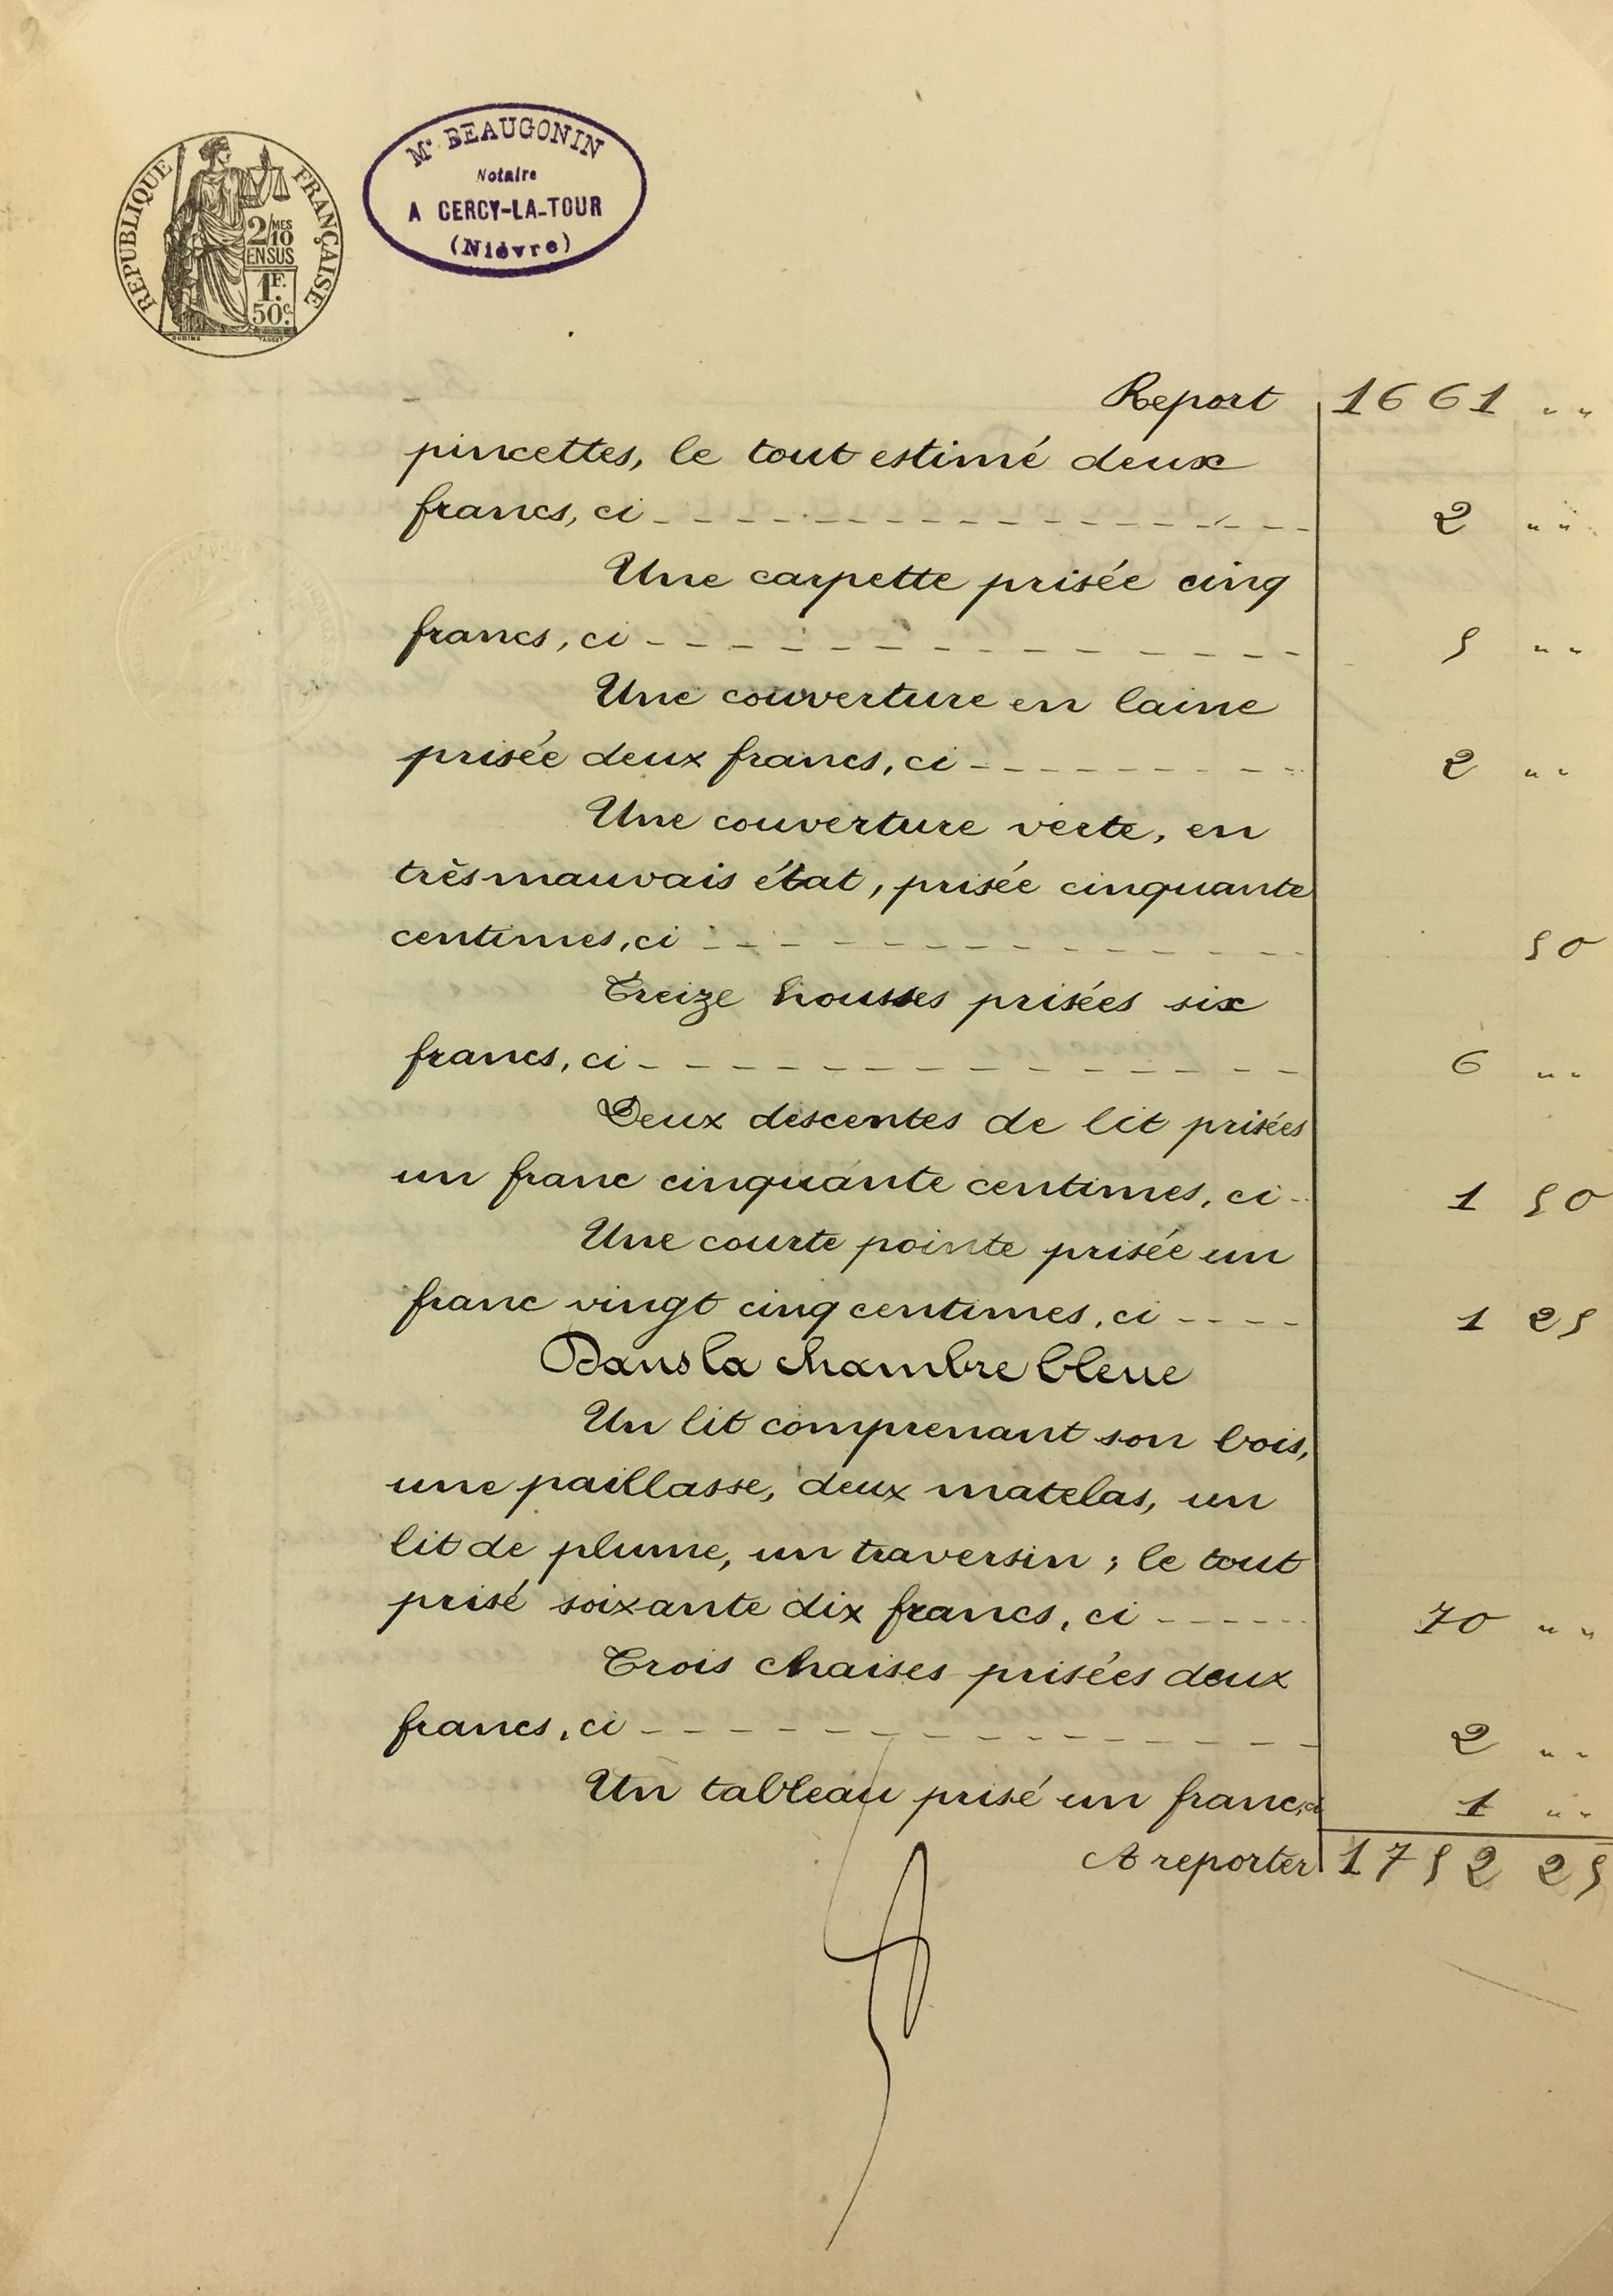 RÉPUBLIQUE FRANÇAISE
2/10 MES
EN SUS
1F.
50c.
Me BEAUGONIN
Notaire
A CERCY-LA-TOUR
(Nièvre)
Report 1661 „ „
pincettes, le tout estimé deux
francs, ci _ _ _ _ _ _ _ _ _ _ _ _ 2 „ „
Une carpette prisée cinq
francs, ci _ _ _ _ _ _ _ _ _ _ _ _ 5 „ „
Une couverture en laine
prisée deux francs, ci _ _ _ _ _ _ _ 2 „ „
Une couverture verte, en
très mauvais état, prisée cinquante
centimes, ci _ _ _ _ _ _ _ _ _ _ _ 50
Treize housses prisées six
francs, ci _ _ _ _ _ _ _ _ _ _ _ _ 6 „ „
Deux descentes de lit prisées
un franc cinquante centimes, ci _ 1 50
Une courte pointe prisée un
franc vingt cinq centimes, ci _ _ _ _ 1 25
Dans la chambre bleue
Un lit comprenant son bois,
une paillasse, deux matelas, un
lit de plume, un traversin ; le tout
prisé soixante dix francs, ci _ _ _ _ 70 „ „
Trois chaises prisées deux
francs, ci _ _ _ _ _ _ _ _ _ _ _ _ 2 „ „
Un tableau prisé un franc, ci 1 „ „
A reporter 1752 25